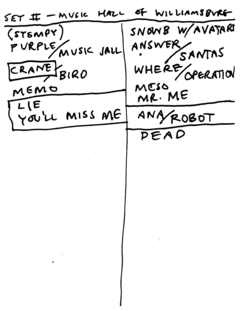 SET II - MUSIC HALL OF WILLIAMSBURG
(STEMPY)
PURPLE/MUSIC JAIL
CRANE/BIRD
MEMO
LIE
YOU'LL MISS ME
SNOWB W/AVATARI
ANSWER/SANTAS
WHERE/OPERATION
MESO
MR. ME
ANA/ROBOT
DEAD